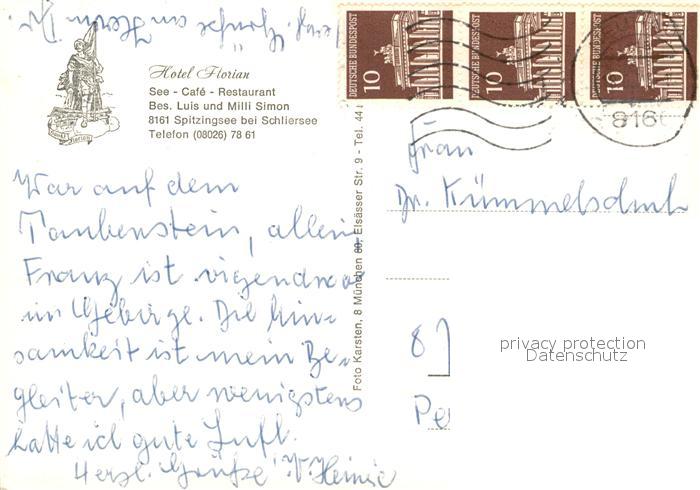 Hotel Florian
See - Café - Restaurant
Bes. Luis und Milli Simon
8161 Spitzingsee bei Schliersee
Telefon (08026) 78 61
Florian
War auf dem
Taubenstein, allein
Franz ist irgendwo
im Gebirge. Die Ein-
samkeit ist mein Be-
gleiter, aber wenigstens
hatte ich gute Luft.
Herzl. Grüße
Grüße an Herrn Dr.
Foto Karsten, 8 München 80, Elsässer Str. 9 - Tel. 44
DEUTSCHE BUNDESPOST
10
DEUTSCHE BUNDESPOST
10
DEUTSCHE BUNDESPOST
10
816
Frau
Dr. Kümmelschuh
8
Pe
privacy protection
Datenschutz